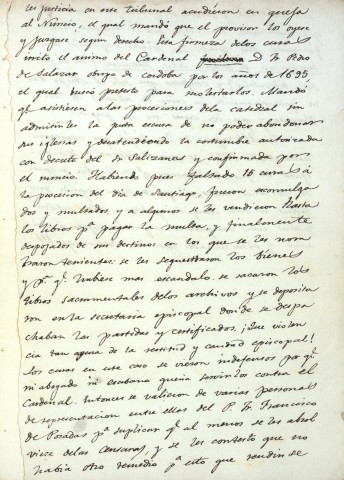 les justicia en este Tribunal acudieron en queja
al Nuncio, el qual mandó que el provisor los oyese
y juzgase segun derecho. Esta firmeza delos curas
irritó el animo del Cardenal D. Fr. Pedro
de Salazar obispo de cordoba por los años de 1695,
el qual buscó pretesto para molestarlos. Mandó
qe. asistiesen alas procesiones dela catedral sin
admitirles la justa escusa de no poder abandonar
sus iglesias y desatendiendo la costumbre autorizada
con decreto del Sr. Salizanes y confirmada por
el nuncio. Habiendo pues faltado 15 curas á
la procesion del dia de Santiago, fueron escomulga
dos y multados, y a algunos se les vendieron hasta
los libros pa. pagar la multa, y finalmente
despojados de sus destinos en los que se les nom
braron tenientes: se les sequestraron los bienes
y pa. qe. hubiese mas escandalo, se sacaron los
libros sacramentales delos archivos y se deposita
ron en la secretaria episcopal donde se despa
chaban las partidas y certificados. ¡Que violen
cia tan agena de la rectitud y caridad episcopal!
Los curas en este caso se vieron indefensos por qe.
ni abogado ni escribano queria servirlos contra el
Cardenal. Entonces se valieron de varias personas
de representacion entre ellas del P. Fr. Francisco
de Posadas pa. suplicar qe. al menos se les absol
viese delas censuras, y se les contestó que no
habia otro remedio pa. ello que rendirse